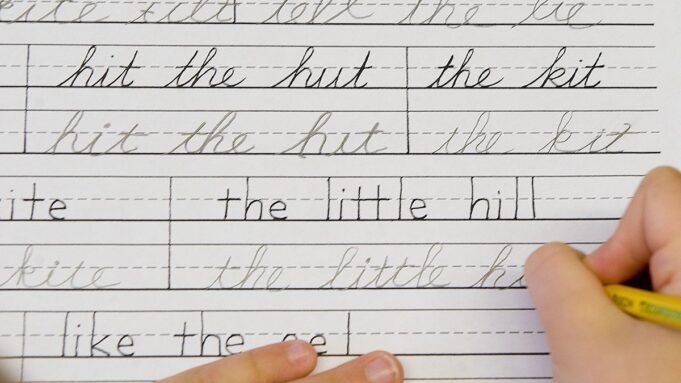 hit the hut the kit
hit the hut the kit
ite the little hill
kite the little
like the eel